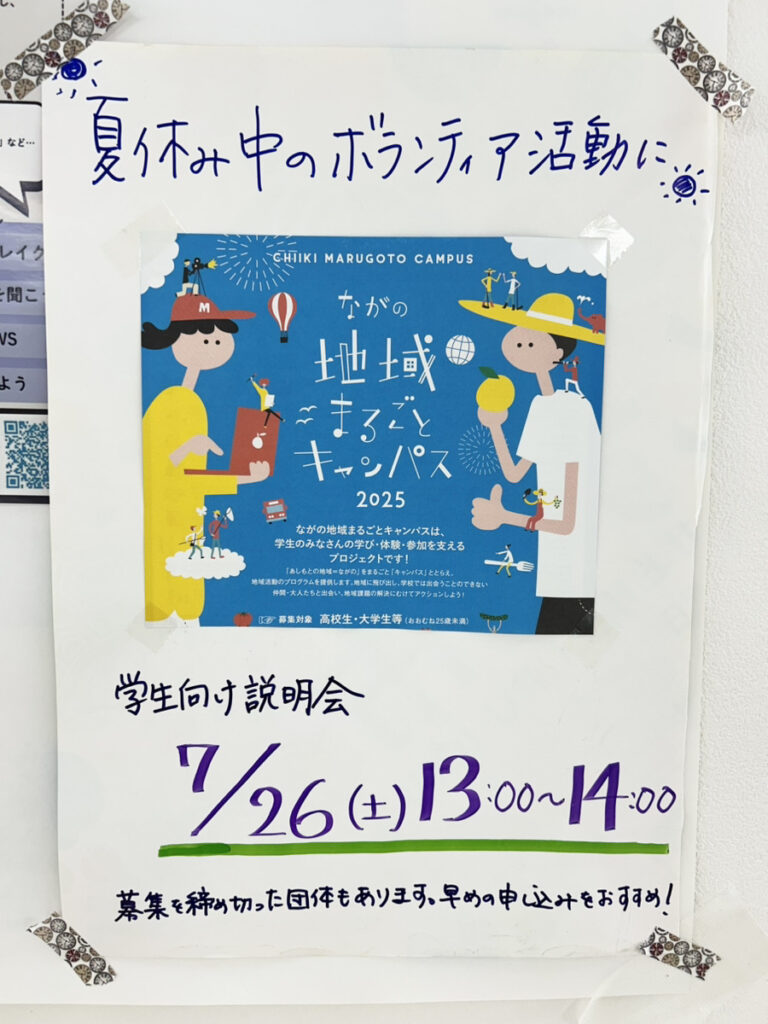 夏休み中のボランティア活動に
CHIIKI MARUGOTO CAMPUS
ながの
地域
まるごと
キャンパス
2025
ながの地域まるごとキャンパスは、
学生のみなさんの学び・体験・参加を支える
プロジェクトです!
「あしもとの地域=ながの」をまるごと「キャンパス」ととらえ、
地域活動のプログラムを提供します。地域に飛び出し、学校では出会うことのできない
仲間・大人たちと出会い、地域課題の解決にむけてアクションしよう!
募集対象 高校生・大学生等(おおむね25歳未満)
学生向け説明会
7/26(土)13:00~14:00
募集を締め切った団体もあります。早めの申し込みをおすすめ!
M
など…
レイク
を聞こ
WS
よう